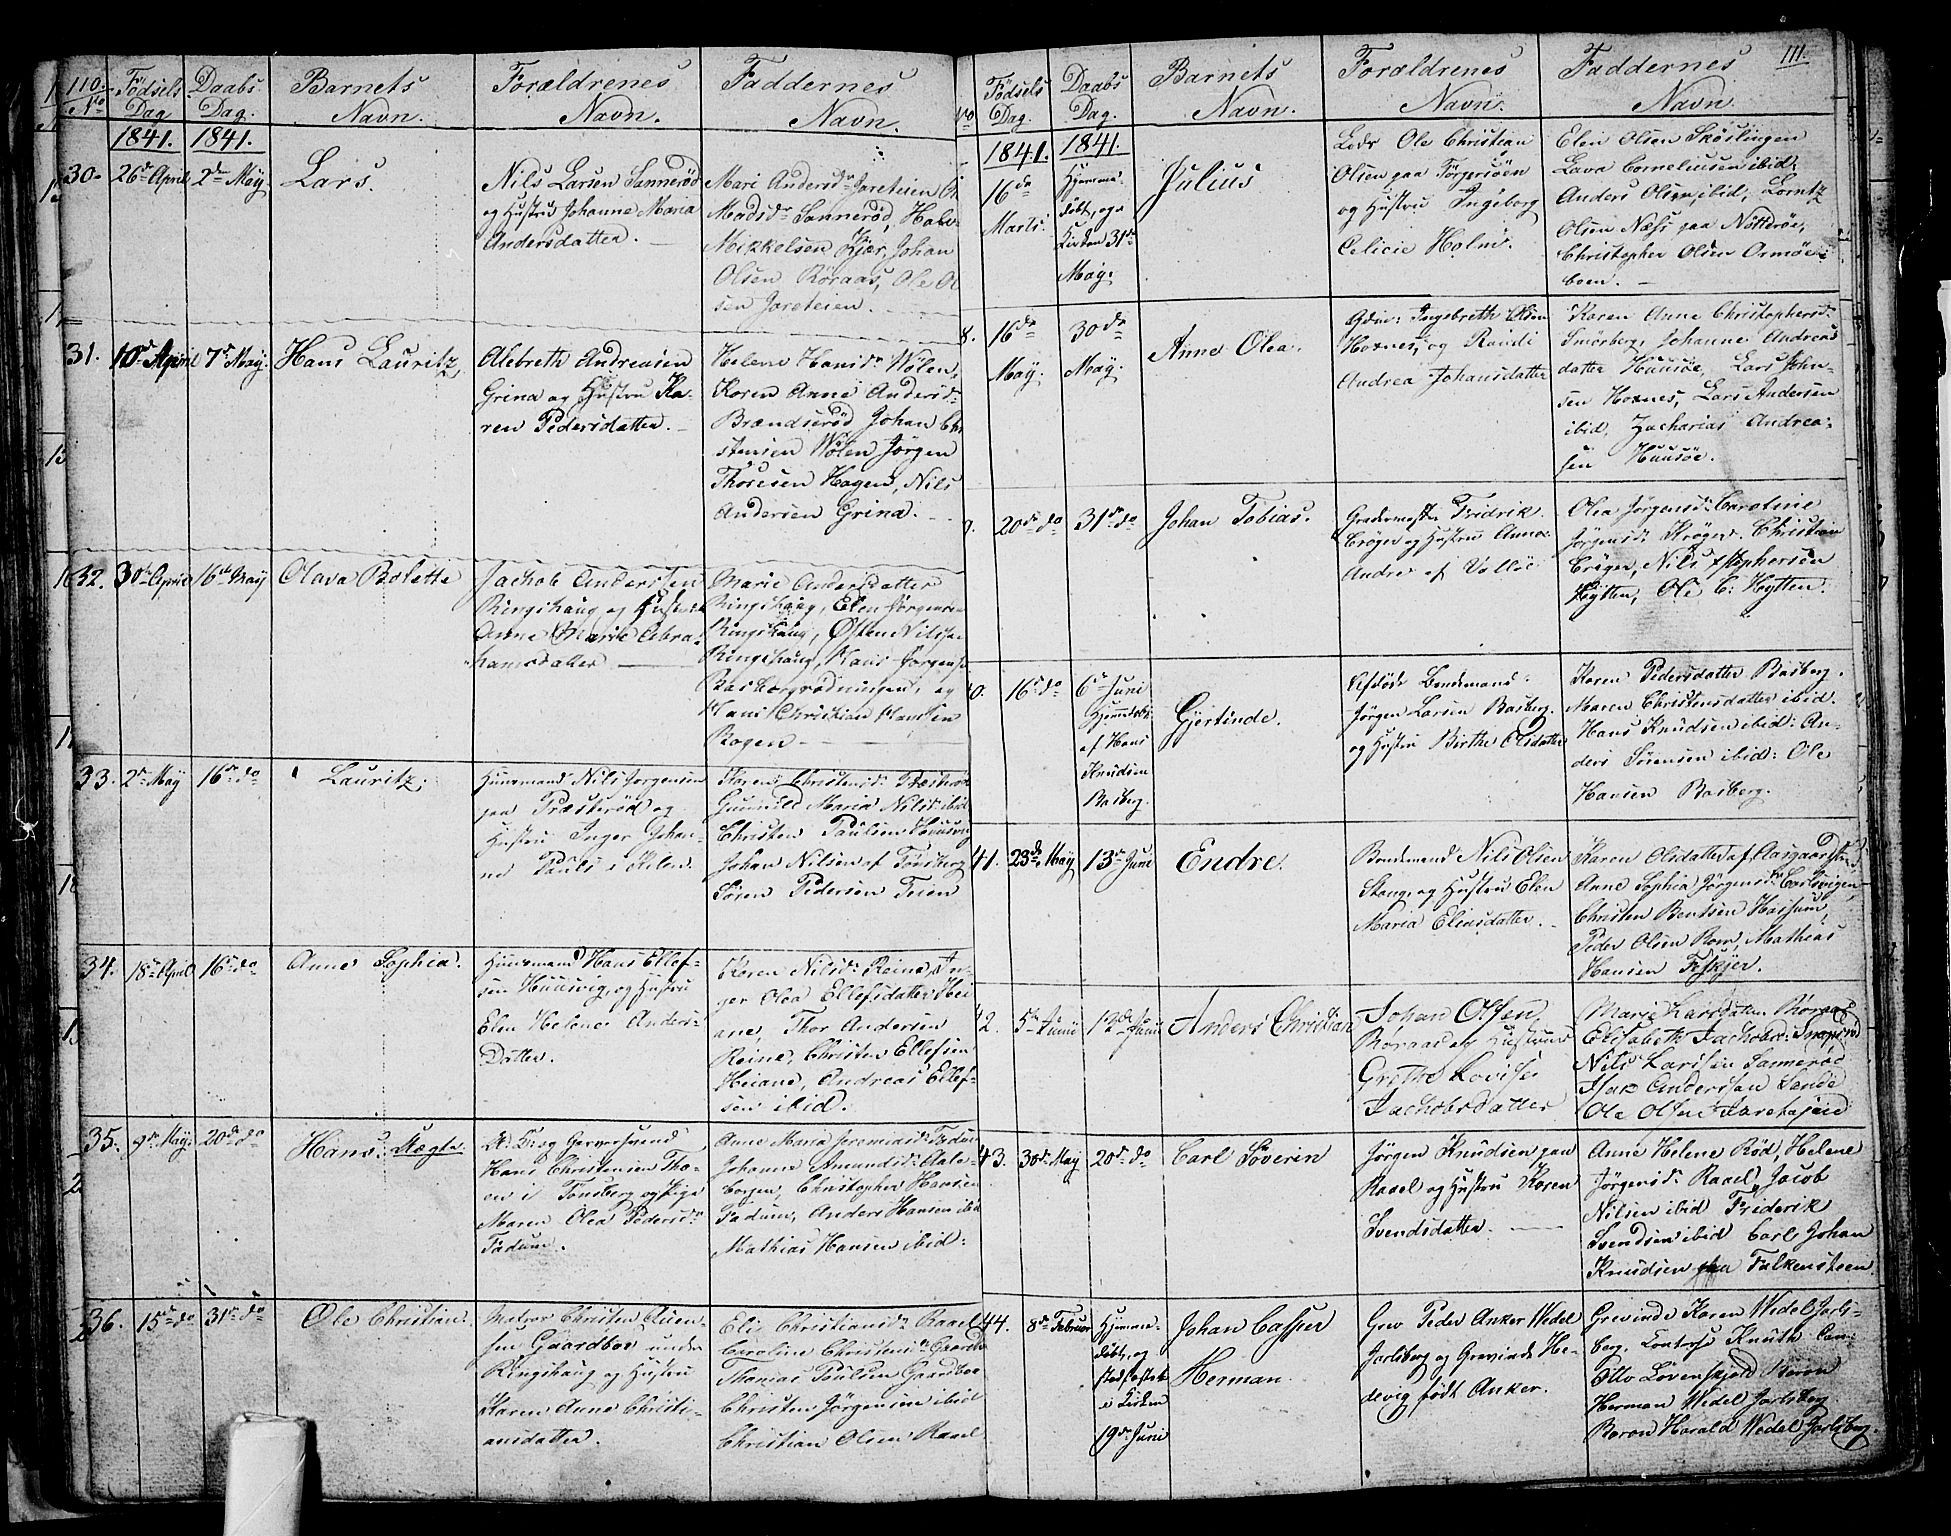 110.
No
Fødsels Dag
Daabs Dag.
Barnets Navn.
Forældrenes Navn.
Faddernes Navn.
1841. 1841.
30. 26de April 2den May Lars.
Nils Larsen Sannerød
og Hustru Johanne Maria
Andersdatter.
Mari Andersdr Jareteien
Madsdr Sannerød, Halv
Mikkelsen Kjær, Johan
Olsen Roraas, Ole Ol
sen Jareteien.
31. 10de April 7de May. Hans Lauritz,
Alebreth Andreasen
Grina og Hustru Ka-
ren Pedersdatter.
Helene Hansdr Wølen,
Karen Anne Andersdr
Brændsrød Johan Chri
stensen Wølen Jørgen
Thoresen Hagen, Nils
Andersen Grina.
32. 30te April 16de May Olava Bolette
Jachob Anderssen
Ringshaug og Hustrue
Anne Marie Abra-
hamsdatter
Marie Andersdatter
Ringshaug, Elen Jørgensen
Ringshaug, Østen Nilsen
Ringshaug, Hans Jørgensen
Basbergrødningen, og
Hans Christian Hansen
Bogen
33. 2de May 16de do Lauritz.
Huusmand Nils Jørgensen
paa Præsterød og
Hustru Inger Johan-
ne Pauls
Karen Christensdr Præsterød
Gunnild Maria Nilsdr ibid
Christen Paulsen Huusvig
Johan Nilsen af Tønsberg
Søren Pedersen Teien
34. 18de April 16de do Anne Sophia.
Huusmand Hans Ellef-
sen Huusvig, og Hustru
Elen Helene Anders-
Datter.
Karen Nilsdr Reine, In-
ger Olea Ellefsdatter Hei
ane, Thor Andersen
Reine, Christen Ellefsen
Heiane, Andreas Ellef-
sen ibid.
35. 9de May 20de do Hans. Uægte.
Garversvend
Hans Christensen Tho-
en i Tønsberg og Pige
Maren Olea Pedersdr
Tadum.
Anne Maria Jeremiasdr Tadum
Johanne Amundsdr Aale-
borgen, Christopher Hansen
Tadum, Anders Hansen ibid
Mathias Hansen ibid:
36. 15de do 31te do Ole Christian.
Matros Christen Amen-
sen Gaardboe under
Ringshaug og Hustru
Karen Anne Christi-
ansdatter.
Eli Christiansdr Raael
Caroline Christensdr Gaardbo
Thomas Poulsen Gaardboe
Christen Jørgensen ibid
Christian Olsen Raael
111.
No
Fødsels Dag.
Daabs Dag.
Barnets Navn.
Forældrenes Navn.
Faddernes Navn.
1841. 1841.
16de Marts. Hjemme-
døbt, og i
Kirken 31te
May.
Julius
Lods Ole Christian
Olsen paa Torgersøen
og Hustru Ingeborg
Celicie Holm.
Elen Olsen Skøslingen
Lava Corneliusen ibid.
Anders Olsen ibid, Lorntz
Olsen Næss paa Nøtterøe,
Christopher Olsen Ormøe-
boen.
8. 16de May. 30de May. Anne Olea.
Gdm: Ingebreth Olsen
Hoxnes, og Randi
Andrea Johansdatter
Karen Anne Christophersd.
Smørberg, Johanne Andreas
datter Huusøe, Lars John-
sen Hoxnes, Lars Andersen
ibid, Zacharias Andrea-
sen Huusøe.
9. 20de do 31te do Johan Tobias.
Gradermester Fridrik
Crøger og Hustru Anna
Andre af Valløe
Olea Jørgensd: Caroline
Jørgensd: Krøger, Christian
Crøger, Nils Stephersen
Hytten, Ole C: Hytten.
0. 16de do 6te Juni
Hjemmdøbt
af Hans
Knudsen
Basberg.
Gjertinde.
Afdøde Bondemand:
Jørgen Larsen Basberg.
og Hustru Birthe Olsdatter
Karen Pedersdatter Basberg.
Maren Christensdatter ibid.
Hans Knudsen ibid: An-
ders Sørensen ibid: Ole
Hansen Basberg.
41. 23de May 13de Juni Endre.
Bondemand Nils Olsen
Stang, og Hustru Elen
Maria Eliasdatter.
Karen Olsdatter af Aasgaardstr.
Anne Sophia Jørgensdr Carlsvigen
Christen Bentsen Haisum,
Peder Olsen Rom, Mathias
Hansen Feskjer.
42. 5te Junii 12de Junii Anders Christian
Johan Olsen
Roraas og Hustrue
Grethe Lovise
Jachobsdatter
Marie Larsdatter Røraas
Elisabeth Jachobsd: Snaperød
Nils Larsen Sannerød
Isak Anderssen Sande
Ole Olsen Jaretejen
43. 30de May 20de do Carl Søverin
Jørgen Knudsen paa
Raael og Hustru Karen
Svendsdatter.
Anne Helene Rød, Helene
Jørgensd: Raael, Jacob
Nilsen ibid Friderik
Svendsen ibid Carl Johan
Knudsen paa Falkensteen
44. 8de Februar Hjemme-
døbt, og
stadfæstet
i Kirken
19de Juni
Johan Casper
Herman.
Grev Peder Anker Wedel
Jarlsberg og Grevinde He-
devig født Anker.
Grevinde Karen Wedel Jarls-
berg, Contesse Knuth Cam-
Otto Løvenskjold Baron
Herman Wedel Jarlsberg
Baron Harald Wedel Jarlsberg.